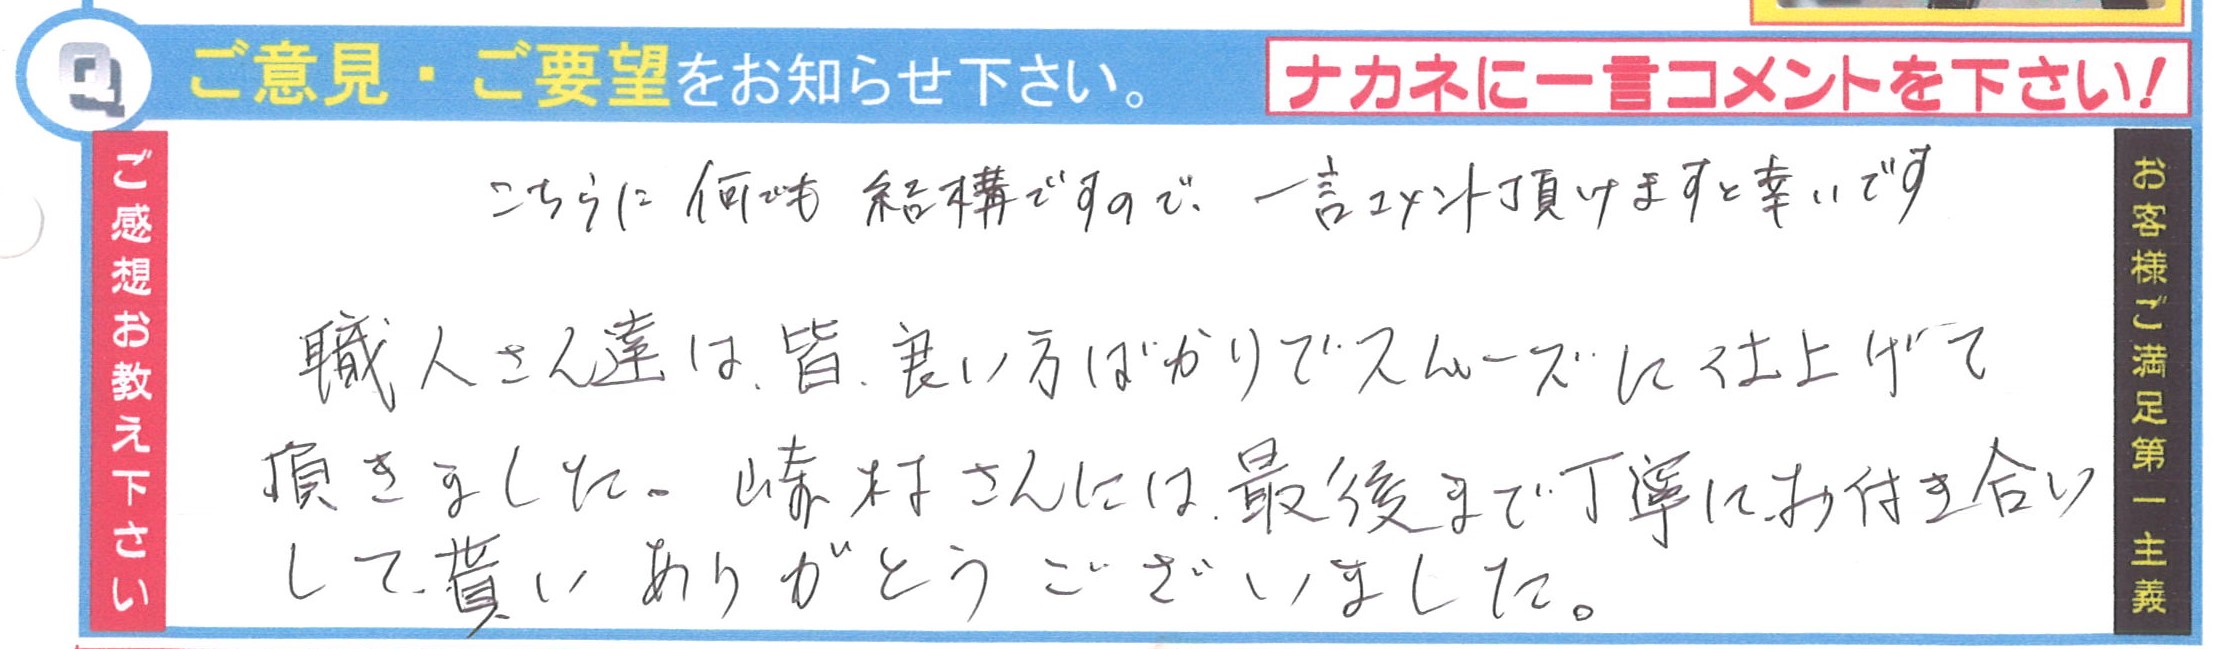 Q ご意見・ご要望をお知らせ下さい。
ナカネに一言コメントを下さい!
ご感想お教え下さい
お客様ご満足第一主義
こちらに何でも結構ですので、一言コメント頂けますと幸いです
職人さん達は、皆、良い方ばかりでスムーズに仕上げて
頂きました。崎村さんには、最後まで丁寧にお付き合い
して貰いありがとうございました。